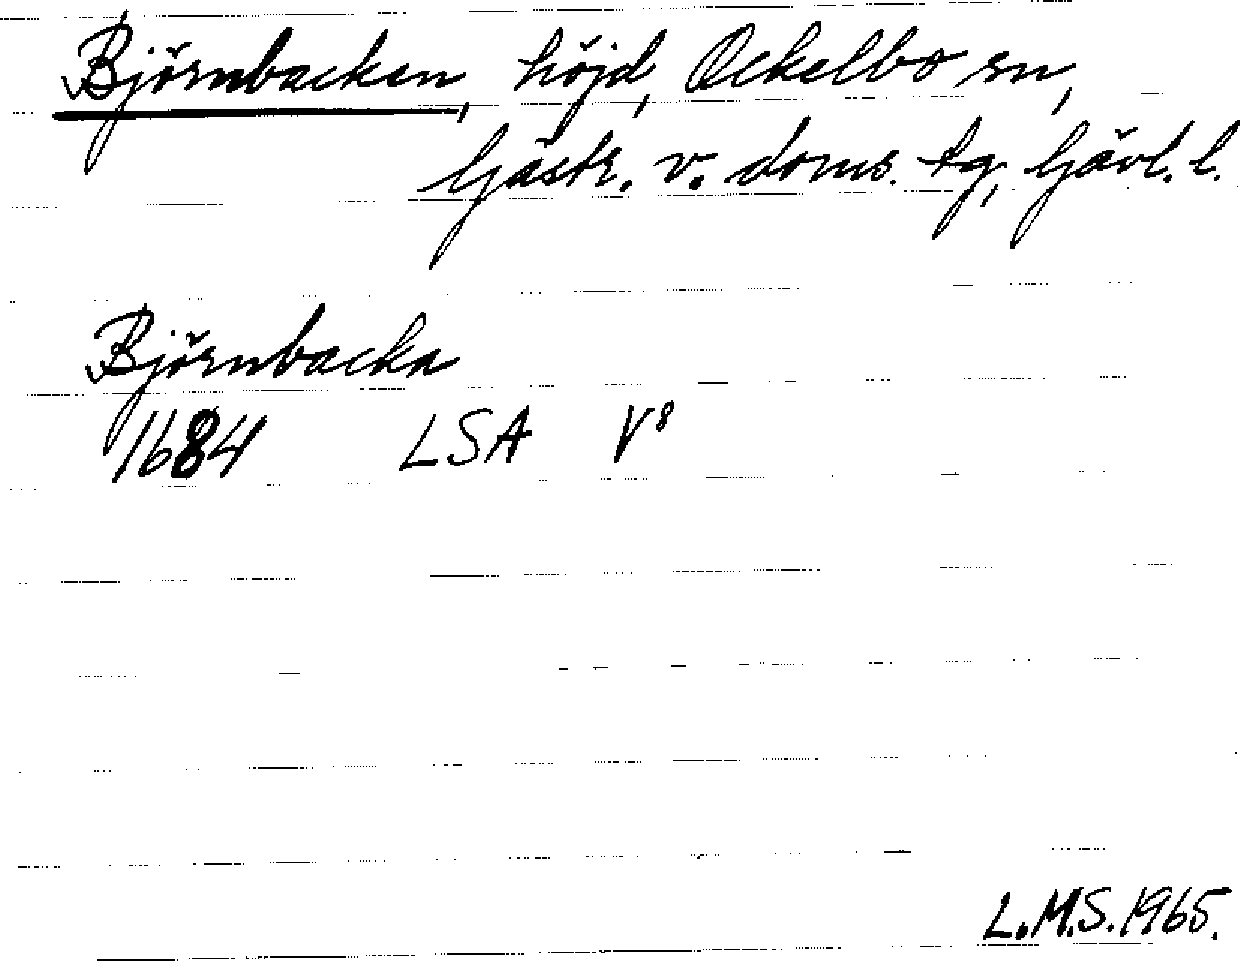 Björnbacken, höjd, Ockelbo sn,
Gästr. v. doms. tg, Gävl. l.
Björnbacka
1684 LSA V8
L.M.S. 1965.